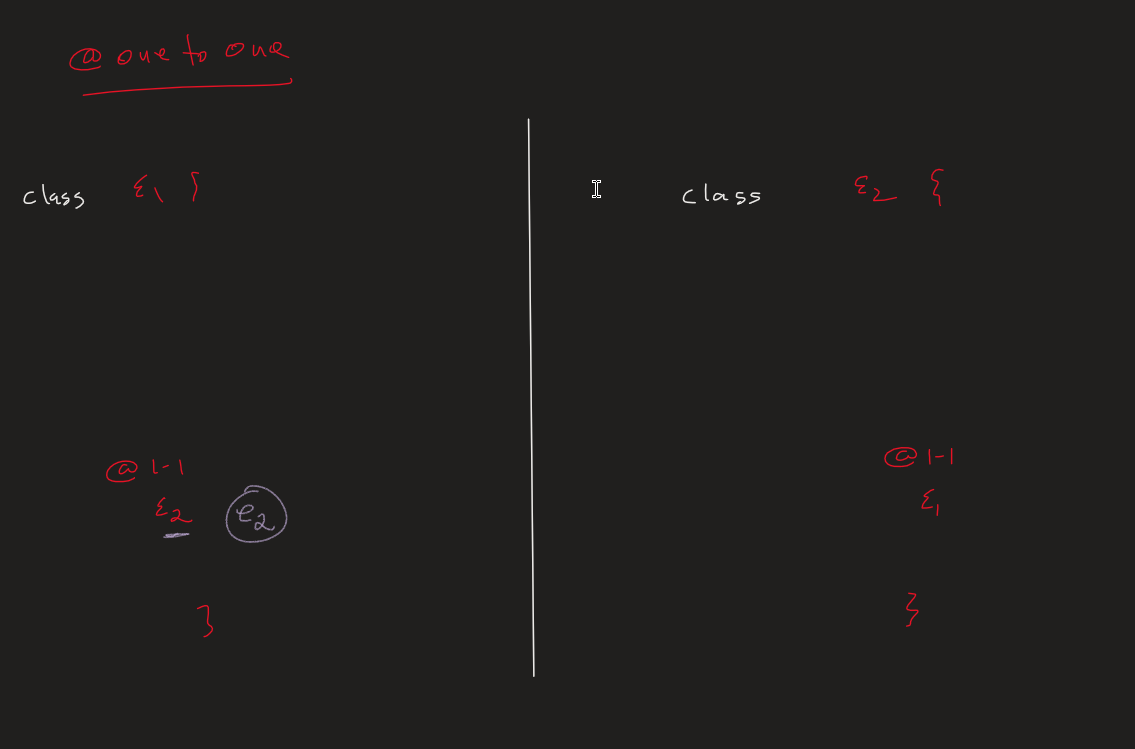 @ one to one
class E1 {
@ 1-1
E2 e2
}
class E2 {
@ 1-1
E1
}